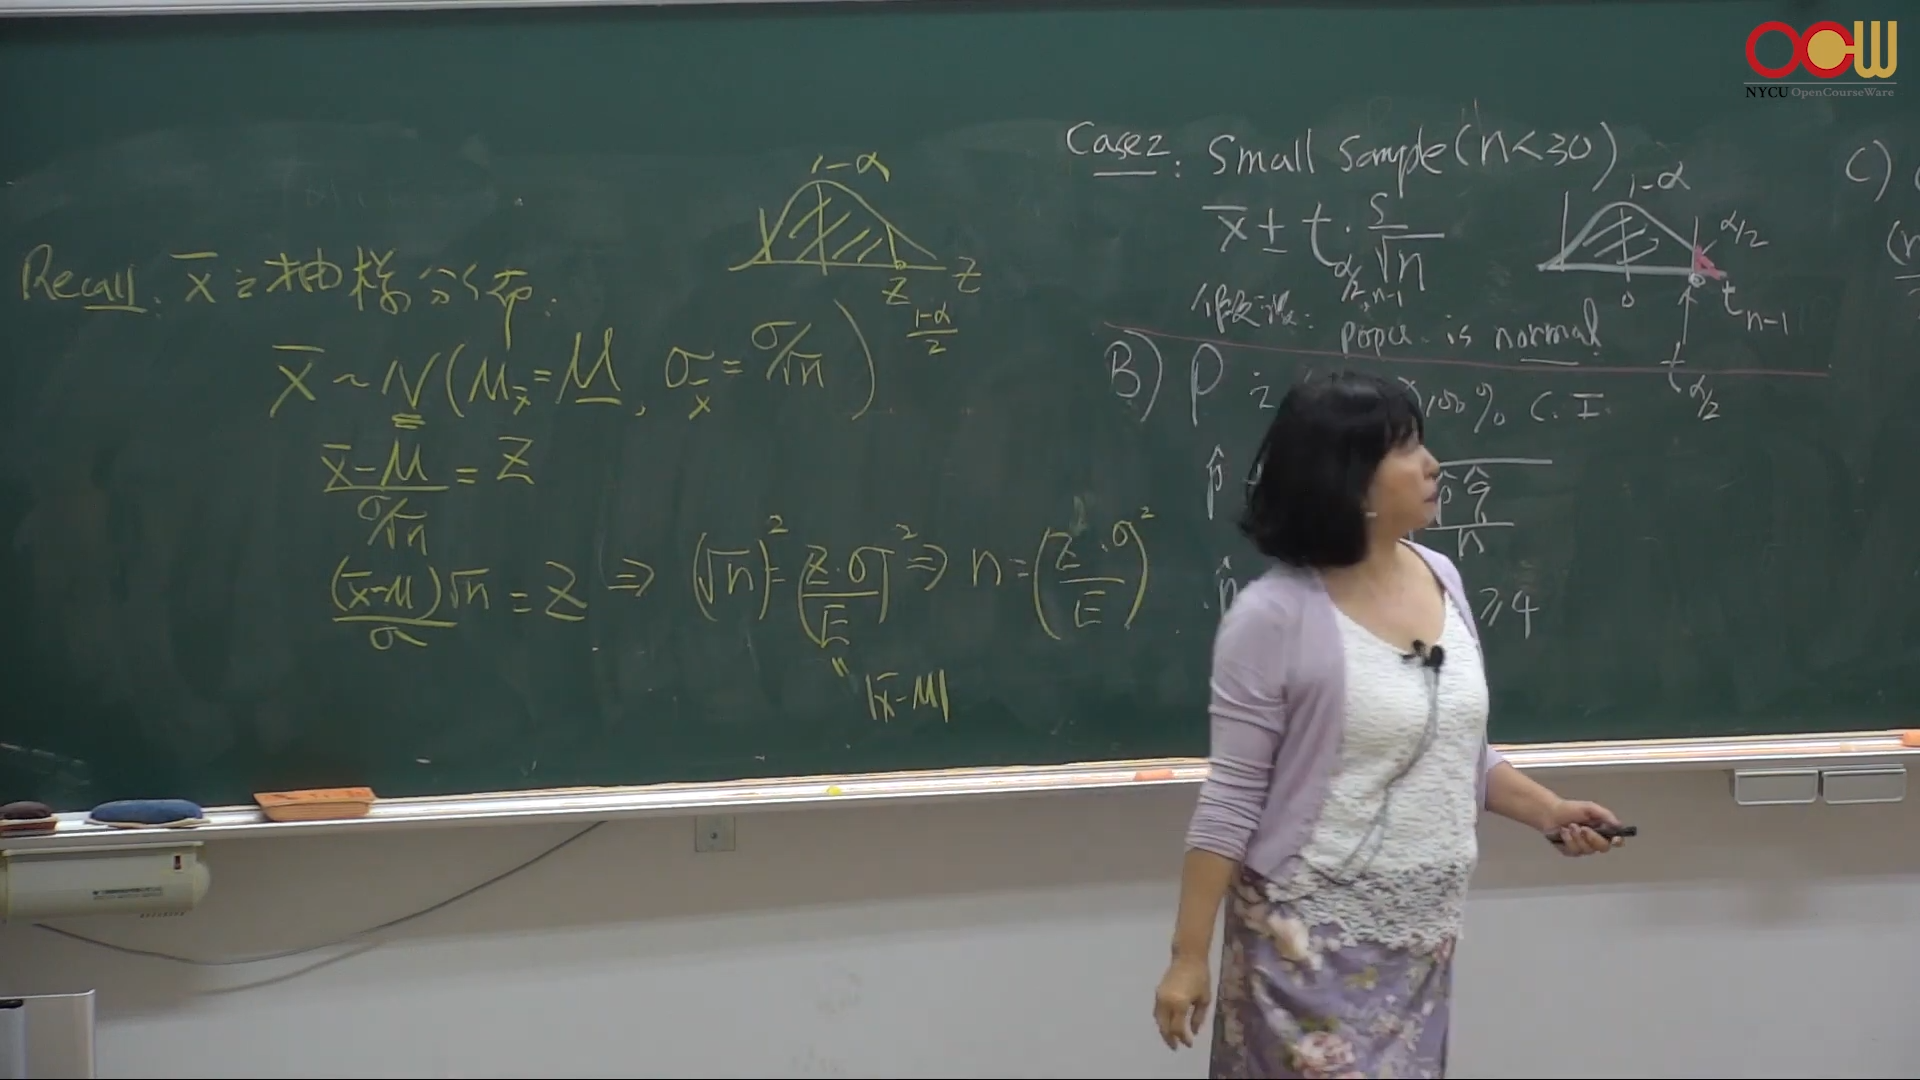 OCW
NYCU OpenCourseWare
Recall: x̄ 之抽樣分佈:
x̄ ~ N(μx̄ = μ, σx̄ = σ/√n)
(x̄-μ)/(σ/√n) = Z
(x̄-μ)√n/σ = Z ⇒ (√n)² = (Z·σ/E)² ⇒ n = (Z·σ/E)²
" |x̄-μ|
1-α
Z
Z (1-α)/2
Case2: Small Sample (n<30)
x̄ ± t α/2, n-1 · s/√n
假設: popu. is normal
1-α
α/2
0
t n-1
t α/2
B) P 之
100% C.I.
p̂
p̂q̂/n
≥4
C)